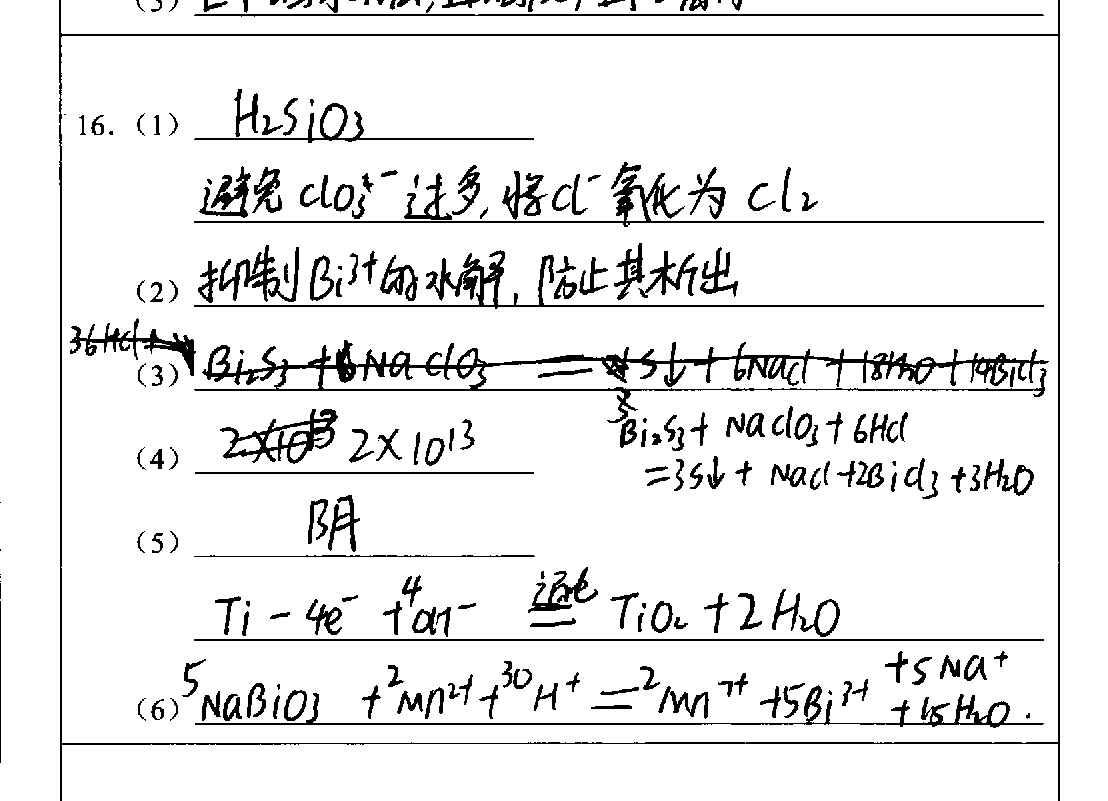 16.（1） H₂SiO₃
避免 ClO₃⁻ 过多,将Cl⁻氧化为Cl₂
（2）抑制Bi³⁺的水解,防止其析出
36HCl +
（3）Bi₂S₃ + 6NaClO₃ = S↓ + 6NaCl + 18H₂O + 14BiCl₃
Bi₂S₃ + NaClO₃ + 6HCl
=3S↓ + NaCl+2BiCl₃ +3H₂O
（4）2×10¹³ 2×10¹³
（5） 阴
Ti - 4e⁻ + 4OH⁻ 通电= TiO₂ + 2H₂O
（6）5NaBiO₃ + 2Mn²⁺ + 30H⁺ = 2Mn⁷⁺ + 5Bi³⁺ +5Na⁺ +15H₂O.